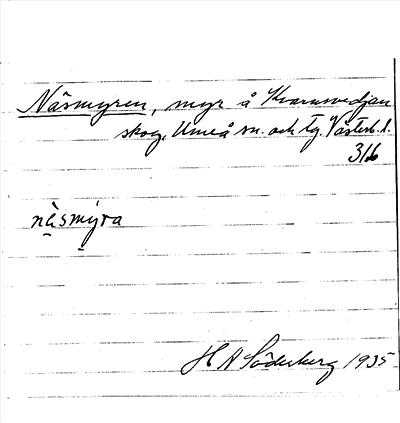 Näsmyren, myr å Kvarnsvedjan
skog, Umeå sn. och tg. Västerb. l.
316
näsmyra
H A Söderberg 1935